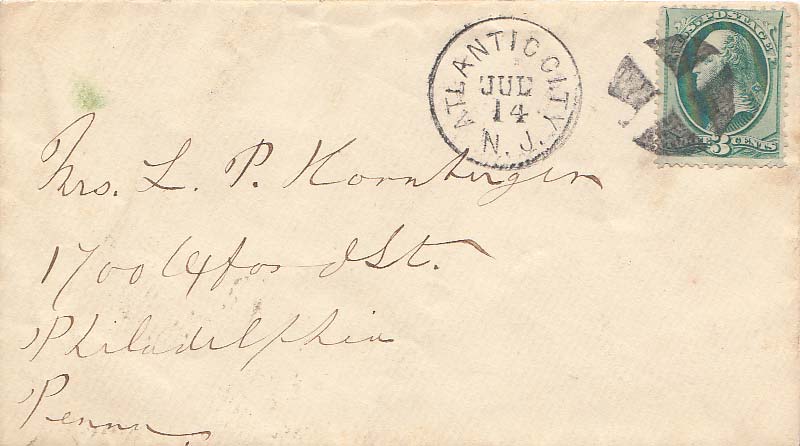 U.S. POSTAGE
ATLANTIC CITY
JUL
14
N. J.
3 CENTS
Mrs. L. P. Hornberger
1700 Oxford St.
Philadelphia
Penna.